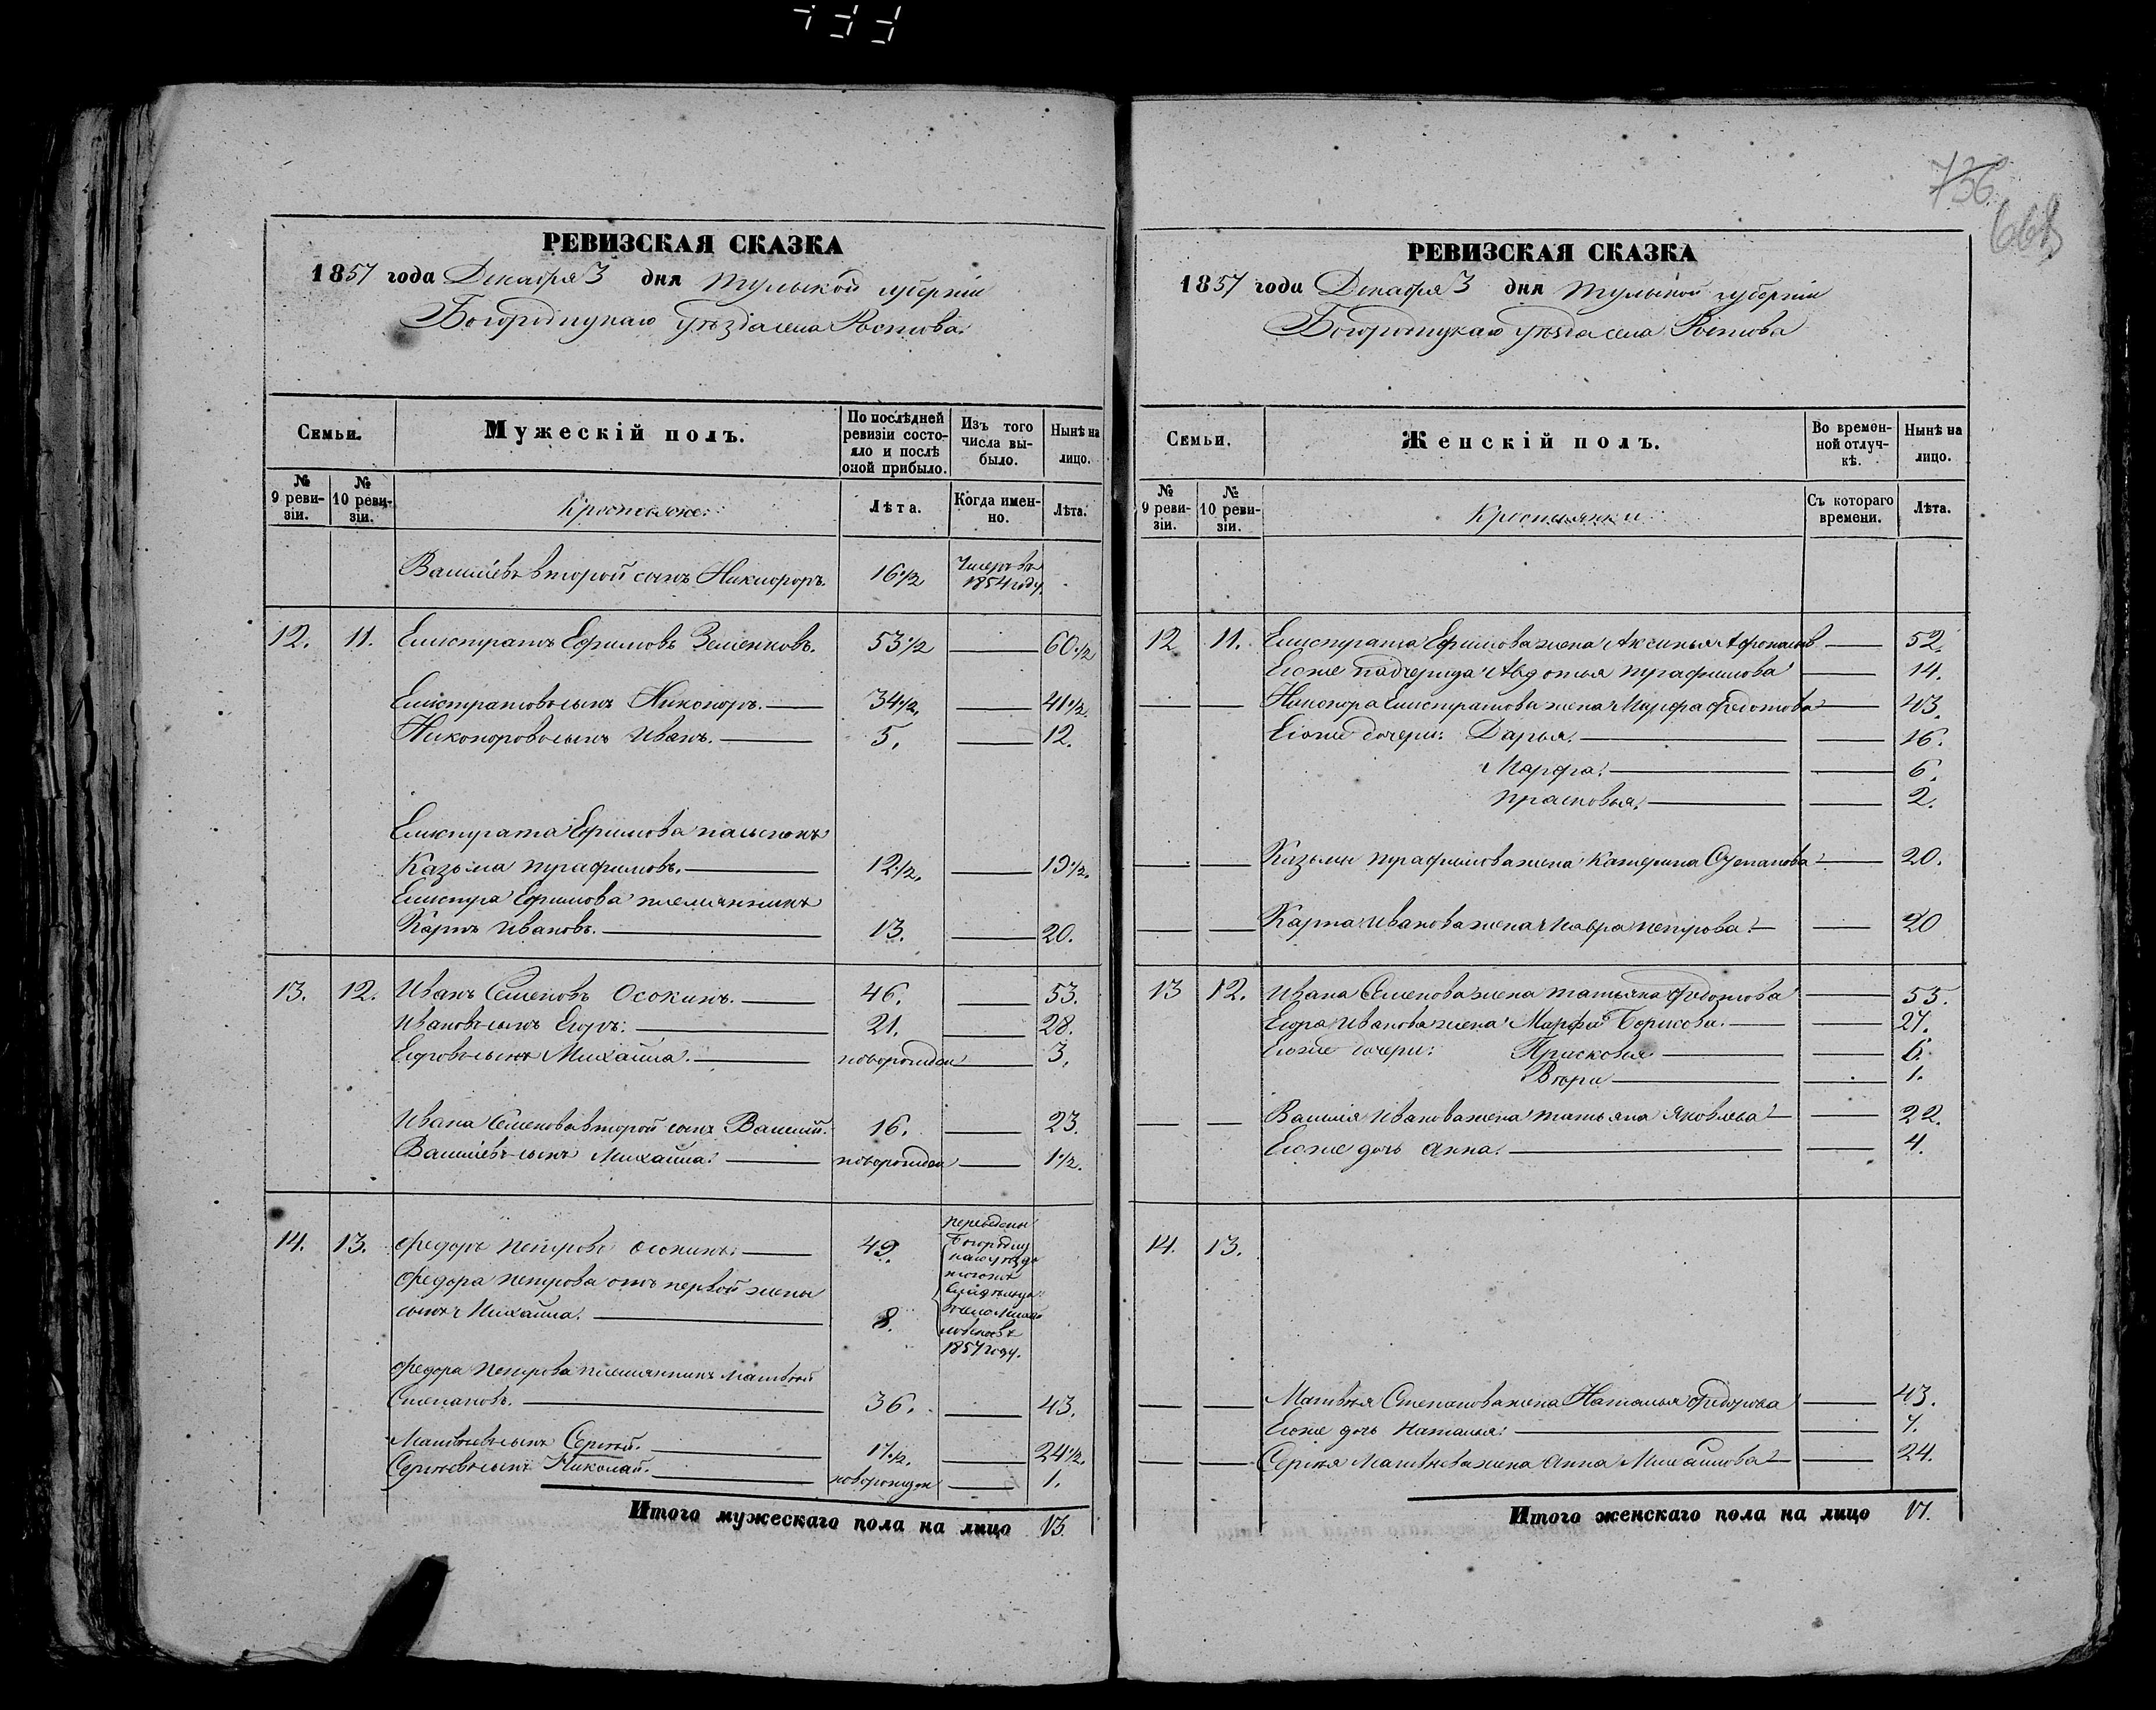 736
668
РЕВИЗСКАЯ СКАЗКА
1857 года Декабря 3 дня Тульской губерніи
Богородицкаго уѣзда села Ростова.
Семьи.
Мужескій полъ.
По послѣдней ревизіи состояло и послѣ оной прибыло.
Изъ того числа выбыло.
Нынѣ на лицо.
№ 9 ревизіи.
№ 10 ревизіи.
Крестьяне:
Лѣта.
Когда именно.
Лѣта.
Васильевъ второй сынъ Никифоръ. 16½ Умеръ въ 1854 году.
12. 11. Елистратъ Ефимовъ Зеленковъ. 53½ 60½
Елистратовъ сынъ Никоноръ. 34½. 41½.
Никоноровъ сынъ Иванъ. 5. 12.
Елистрата Ефимова пасынокъ
Казьма Трафимовъ. 12½. 19½.
Елистра Ефимова племянникъ
Карпъ Ивановъ. 13. 20.
13. 12. Иванъ Семеновъ Осокинъ. 46. 53.
Ивановъ сынъ Егоръ. 21. 28.
Егоровъ сынъ Михайла. новорожден 3.
Ивана Семенова второй сынъ Василій. 16. 23.
Васильевъ сынъ Михайла. новорожден 1½.
14. 13. Федоръ Петровъ Осокинъ. 49. переведены Богородиц
Федора Петрова отъ первой жены
сынъ Михайла. 8. 1857 году.
Федора Петрова племянникъ Матвѣй
Степановъ. 36. 43.
Матвѣевъ сынъ Сергѣй. 17½. 24½.
Сергѣевъ сынъ Николай. новорожден 1.
Итого мужескаго пола на лицо 13.
РЕВИЗСКАЯ СКАЗКА
1857 года Декабря 3 дня Тульской губерніи
Богородицкаго уѣзда села Ростова
Семьи.
Женскій полъ.
Во временной отлучкѣ.
Нынѣ на лицо.
№ 9 ревизіи.
№ 10 ревизіи.
Крестьянки
Съ котораго времени.
Лѣта.
12 11. Елистрата Ефимова жена Аксинья Афонасьев 52.
Егоже падчерица Авдотья Трафимова 14.
Никонора Елистратова жена Марфа Федотова 43.
Егоже дочери: Дарья. 16.
Марфа. 6.
Прасковья. 2.
Казьмы Трафимова жена Катерина Степанова 20.
Карпа Иванова жена Мавра Петрова. 20
13 12. Ивана Семенова жена Татьяна Федотова 55.
Егора Иванова жена Марфа Борисова. 27.
Егоже дочери: Прасковья 6.
Вѣра 1.
Василія Иванова жена Татьяна Яковлева 22.
Егоже дочь Анна. 4.
14. 13.
Матвѣя Степанова жена Наталья Федорова 43.
Егоже дочь Наталья. 7.
Сергѣя Матвѣева жена Анна Михайлова 24.
Итого женскаго пола на лицо 17.